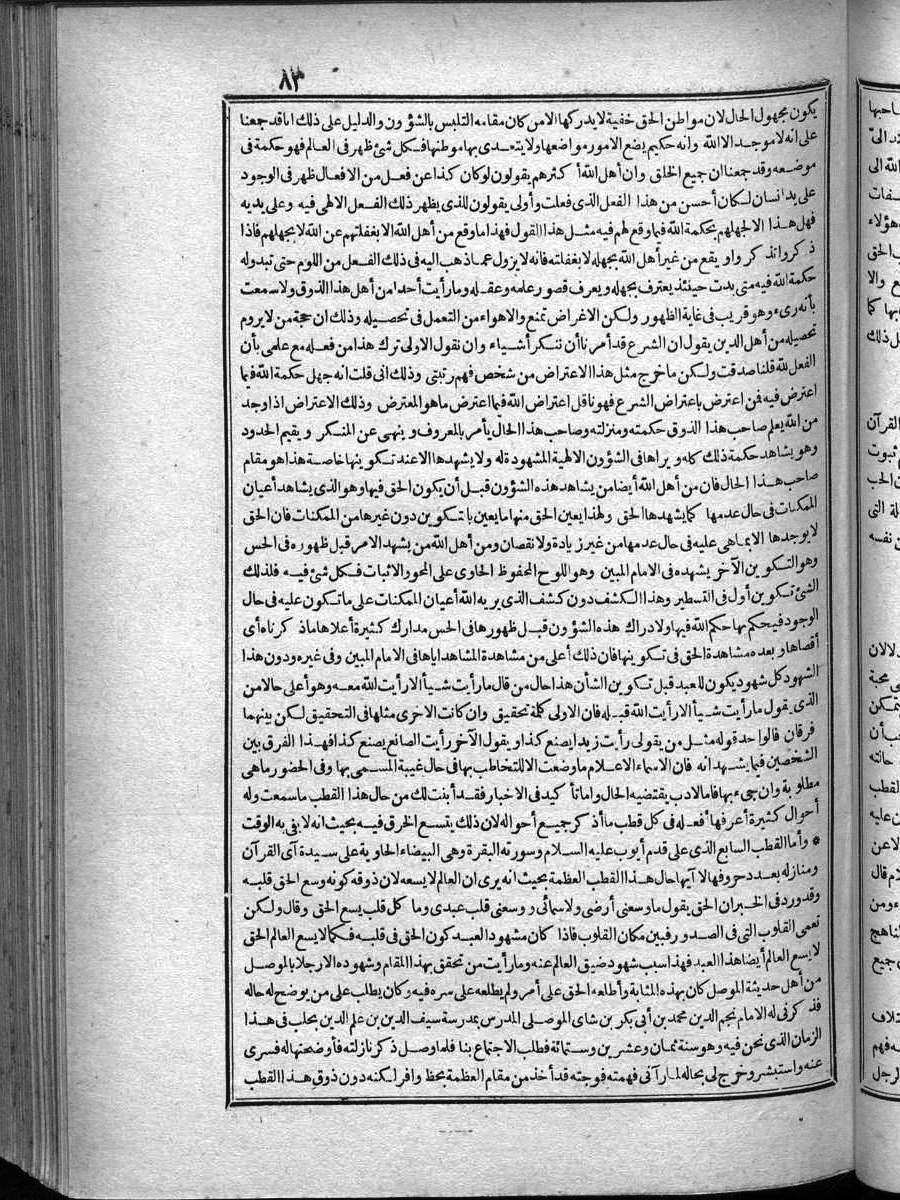 ٨٣
يكون مجهول الحال لان مواطن الحق خفية لا يدركها الا من كان مقامه التلبس بالشؤون والدليل على ذلك اناقد جمعنا
على انه لا موجد الا الله وانه حكيم يضع الامور مواضعها ولا يتعدى بها موطنها فكل شئ ظهر فى العالم فهو حكمة فى
موضعه وقد جمعنا ان جميع الخلق وان أهل الله أكثرهم يقولون لو كان كذا عن فعل من الافعال ظهر فى الوجود
على يد انسان لكان أحسن من هذا الفعل الذى فعلت وأولى يقولون للذى يظهر ذلك الفعل الالهى فيه وعلى يديه
فهل هذا الا لجهلهم بحكمة الله فما وقع لهم فيه مثل هذا القول فهذا ما وقع من أهل الله الا بغفلتهم عن الله لا بجهلهم فاذا
ذكروا تذكروا ويقع من غير أهل الله بجهله لا بغفلته فانه لا يزول عما ذهب اليه فى ذلك الفعل من اللوم حتى تبدوله
حكمة الله فيه متى بدت حينئذ يعترف بجهله ويعرف قصور علمه وعقله وما رأيت أحدا من أهل هذا الذوق ولا سمعت
بأنه رىء وهو قريب فى غاية الظهور ولكن الاغراض تمنع والاهواء من التعمل فى تحصيله وذلك ان حجة من لا يروم
تحصيله من أهل الدين يقول ان الشرع قد أمرنا أن ننكر أشياء وان نقول الاولى ترك هذا من فعله مع علمى بأن
الفعل لله قلنا صدقت ولكن ما خرج مثل هذا الاعتراض من شخص فهم رتبتى وذلك انى قلت انه جهل حكمة الله فيما
اعترض فيه فمن اعترض باعتراض الشرع فهو ناقل اعتراض الله فما اعترض ما هو المعترض وذلك الاعتراض اذا وجد
من الله يعلم صاحب هذا الذوق حكمته ومنزلته وصاحب هذا الحال يأمر بالمعروف وينهى عن المنكر ويقيم الحدود
وهو يشاهد حكمة ذلك كله ويراها فى الشؤون الالهية المشهودة له ولا يشهدها الا عند تكوينها خاصة هذا هو مقام
صاحب هذا الحال فان من أهل الله أيضا من يشاهد هذه الشؤون قبل أن يكون الحق فيها وهو الذى يشاهد أعيان
الممكنات فى حال عدمها كما يشهدها الحق ولهذا يعين الحق منها ما يعين بالتكوين دون غيرها من الممكنات فان الحق
لا يوجدها الا بما هى عليه فى حال عدمها من غير زيادة ولا نقصان ومن أهل الله من يشهد الامر قبل ظهوره فى الحس
وهو التكوين الآخر يشهده فى الامام المبين وهو اللوح المحفوظ الحاوى على المحو والاثبات فكل شئ فيه فلذلك
الشئ تكوين أول فى التسطير وهذا الكشف دون كشف الذى يريه الله أعيان الممكنات على ما تكون عليه فى حال
الوجود فيحكم بها حكم الله فيها ولادراك هذه الشؤون قبل ظهورها فى الحس مدارك كثيرة أعلاها ماذكرناه أى
أقصاها وبعده مشاهدة الحق فى تكوينها فان ذلك أعلى من مشاهدة المشاهد اياها فى الامام المبين وفى غيره ودون هذا
الشهود كل شهود يكون للعبد قبل تكوين الشأن هذا حال من قال ما رأيت شيأ الا رأيت الله معه وهو أعلى حالا من
الذى يقول ما رأيت شيأ الا رأيت الله قبله فان الاولى كلمة تحقيق وان كانت الاخرى مثلها فى التحقيق لكن بينهما
فرقان قالوا حد قوله مثل من يقول لى رأيت زيدا يصنع كذا ويقول الآخر رأيت الصانع يصنع كذا فهذا الفرق بين
الشخصين فيما يشهدانه فان الاسماء الاعلام ما وضعت الا للتخاطب بها فى حال غيبة المسمى بها وفى الحضور ما هى
مطلوبة وان جىء بها فاما لادب يقتضيه الحال واما تأكيد فى الاخبار فقد أبنت لك من حال هذا القطب ما سمعت وله
أحوال كثيرة أعرفها أفعله فى كل قطب ما أذكر جميع أحواله لان ذلك يتسع الخرق فيه بحيث انه لا يفى به الوقت
* وأما القطب السابع الذى على قدم أيوب عليه السلام وسورته البقرة وهى البيضاء الحاوية على سيدة آى القرآن
ومنازله بعدد حروفها لا آيها حال هذا القطب العظمة بحيث انه يرى ان العالم لا يسعه لان ذوقه كونه وسع الحق قلبه
وقد ورد فى الخبران الحق يقول ما وسعنى أرضى ولا سمائى ووسعنى قلب عبدى وما كل قلب يسع الحق وقال ولكن
تعمى القلوب التى فى الصدور فبين مكان القلوب فاذا كان مشهود العبد كون الحق فى قلبه فكما لا يسع العالم الحق
لا يسع العالم أيضا هذا العبد فهذا سبب شهود ضيق العالم عنه وما رأيت من تحقق بهذا المقام وشهوده الا رجلا بالموصل
من أهل حديثة الموصل كان بهذه المثابة وأطلعه الحق على أمر ولم يطلعه على سره فيه وكان يطلب على من يوضح له حاله
فذكرنى له الامام نجم الدين محمد بن أبى بكر بن شاى الموصلى المدرس بمدرسة سيف الدين بن علم الدين بحلب فى هذا
الزمان الذى نحن فيه وهو سنة ثمان وعشرين وستمائة فطلب الاجتماع بنا فلما وصل ذكر نازلته فأوضحتها له فسرى
عنه واستبشر وخرج لى بحاله لما رآنى فهمته فوجته قد أخذ من مقام العظمة بحظ وافر لكنه دون ذوق هذا القطب